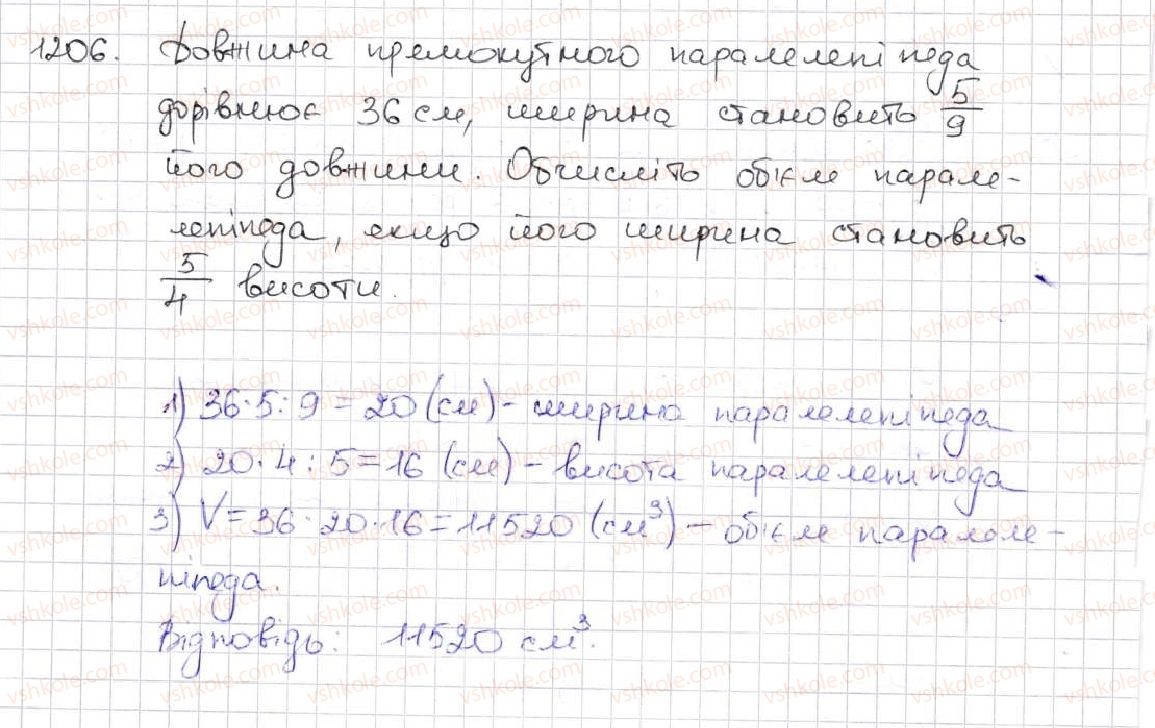 1206. Довжина прямокутного паралелепіпеда
дорівнює 36 см, ширина становить 5/9
його довжини. Обчисліть об'єм парале-
лепіпеда, якщо його ширина становить
5/4 висоти.
1) 36·5:9=20 (см) - ширина паралелепіпеда
2) 20·4:5=16 (см) - висота паралелепіпеда
3) V=36·20·16=11520 (см³) - об'єм паралеле-
піпеда.
Відповідь: 11520 см³.